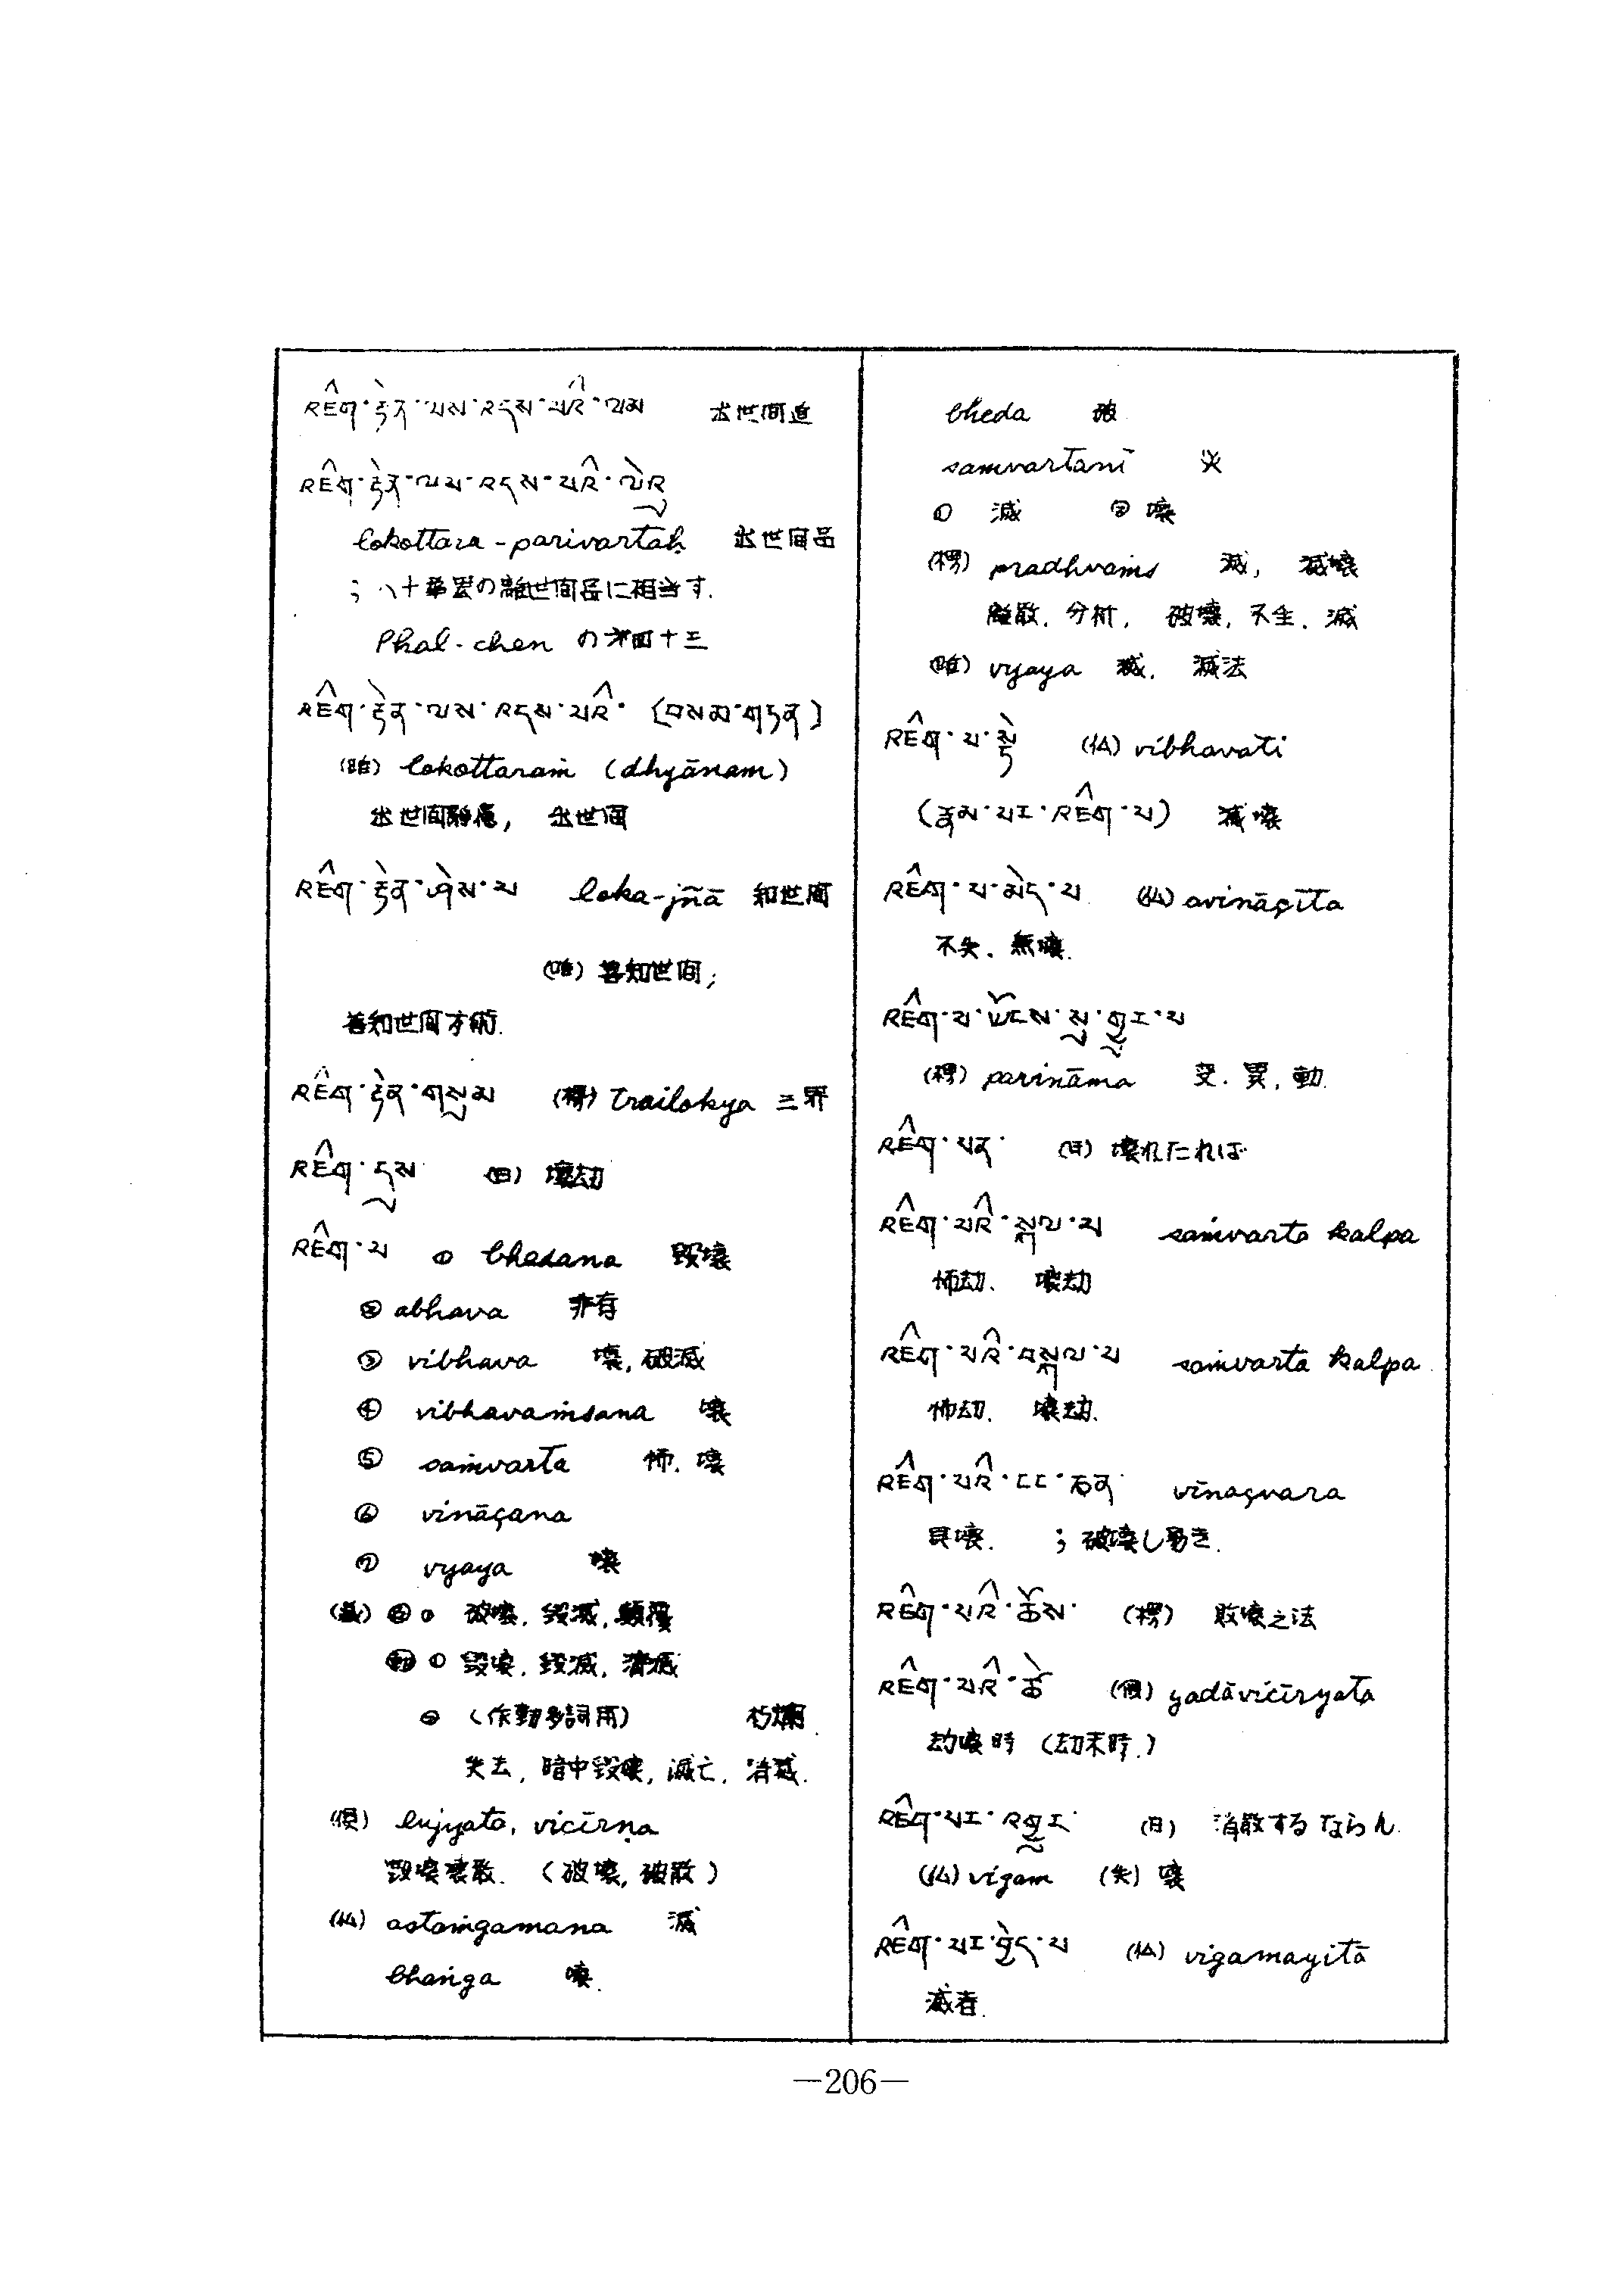 འཇིག་རྟེན་ལས་འདས་པའི་ལམ 出世間道
འཇིག་རྟེན་ལས་འདས་པའི་ལེའུ
lokottara-parivartaḥ 出世间品
; 八十華厳の離世間品に相当す.
Phal-chen の才四十三
འཇིག་རྟེན་ལས་འདས་པའི་ (བསམ་གཏན)
lokottaraṁ (dhyānam)
出世间静慮, 出世间
འཇིག་རྟེན་ཤེས་པ loka-jñā 知世间
善知世间;
善知世间方術.
འཇིག་རྟེན་གསུམ (楞) trailokya 三界
འཇིག་དུས (日) 壊劫
འཇིག་པ ① bhedana 毀壊
② abhava 非存
③ vibhava 壊, 破滅
④ vibhavaṁsana 壊
⑤ saṁvarta 怖. 壊
⑥ vināçana
⑦ vyaya 壊
(蔵) ① 破壊. 毀滅, 顛覆
① 毀壊. 毀滅. 消滅
② (作動名詞用) 朽爛.
失去, 暗中毀壊, 滅亡. 消滅.
lujyate, vicīrṇa
毀壊壊散. (破壊, 破散)
(仏) astaṁgamana 滅
bhaṅga 壊.
bheda 破
saṁvartanī 災
① 滅 ② 壊
(楞) pradhvaṁs 滅, 滅壊
離散. 分析, 破壊, 不生. 滅
vyaya 滅. 滅法
འཇིག་པ་སྟེ (仏) vibhavati
(རྣམ་པར་འཇིག་པ) 滅壊
འཇིག་པ་མེད་པ (仏) avināçita
不失. 無壊.
འཇིག་པ་ཡོངས་སུ་གྱུར་པ
(楞) parināma 変. 異, 動.
འཇིག་པན་ (日) 壊れたれば
འཇིག་པའི་སྐལ་པ saṁvarta kalpa
怖劫. 壊劫
འཇིག་པའི་བསྐལ་པ saṁvarta kalpa.
怖劫. 壊劫.
འཇིག་པའི་ངང་ཅན vinaçvara
具壊. ; 破壊し易き.
འཇིག་པའི་ཆོས་ (楞) 敗壊之法
འཇིག་པའི་ཚེ yadāvicīryata
劫壊時 (劫末時.)
འཇིག་པར་འགྱུར་ (日) 消散するならん.
(仏) vigam (失) 壊
འཇིག་པར་བྱེད་པ (仏) vigamayitā
滅者.
—206—